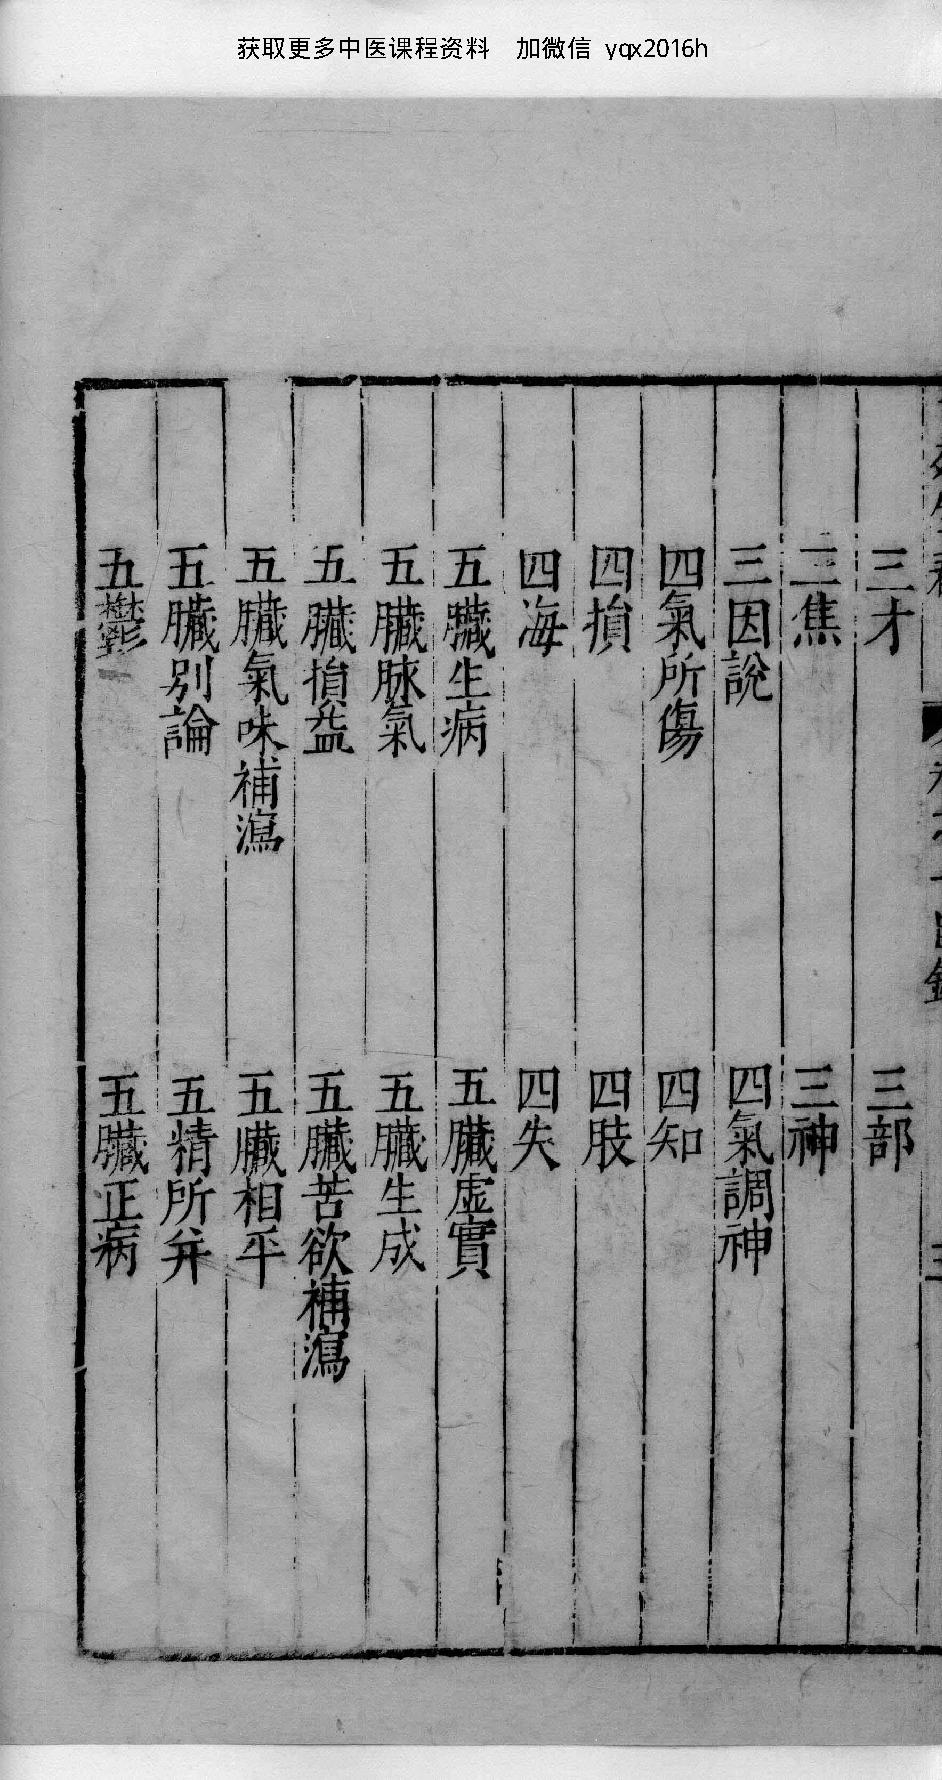 获取更多中医课程资料 加微信 yqx2016h
三才 三部
三焦 三神
三因說 四氣調神
四氣所傷 四知
四損 四肢
四海 四失
五臟生病 五臟虛實
五臟脉氣 五臟生成
五臟損益 五臟苦欲補瀉
五臟氣味補瀉 五臟相平
五臟別論 五精所并
五鬱 五臟正病